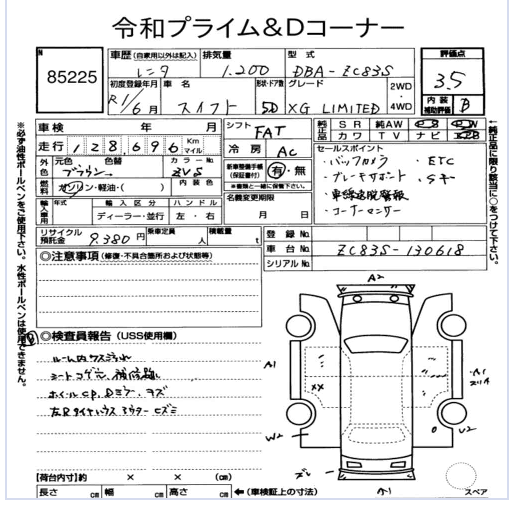 令和プライム&Dコーナー
85225
車歴(自家用以外は記入) 排気量 型式 評価点
レンタ 1.200 DBA-ZC83S 3.5
初度登録年月 車名 形状・ドア数 グレード 2WD 4WD 内装 補助評価 B
R1/6月 スイフト 5D XG LIMITED
車検 年 月 シフト FAT
純正品 SR 純AW
カワ TV ナビ
走行 128,696 Km マイル 冷房 AC
外色 元色 色替 カラーNo
ブラウン ZVS
燃料 ガソリン・軽油・( ) 内装色
新車整備手帳(保証書付) 有・無
※書類と一緒に保管下さい。
セールスポイント
・バックカメラ ・ETC
・ブレーキサポート ・Sキー
・車線逸脱警報
・コーナーセンサー
輸入車用 年式 輸入区分 ハンドル
ディーラー・並行 左・右
名義変更期限
月 日
リサイクル預託金 9.380円 乗車定員 人 積載量 t
登録No.
車台No. ZC83S-130618
シリアルNo.
◎注意事項(修復・不具合箇所および状態等)
◎検査員報告(USS使用欄)
ルーム内ウスヨゴレ
シートコゲ穴、補修跡
ホイールCP、Dミラーキズ
左Rタイヤハウスアウターヒズミ
A2
A1
A1
XX
W2
U2
【荷台内寸】約 × × (cm)
長さ cm 幅 cm 高さ cm ←(車検証上の寸法)
スペア
※必ず油性ボールペンをご使用下さい。水性ボールペンは使用できません。
↑純正品に限り該当に○をつけて下さい。